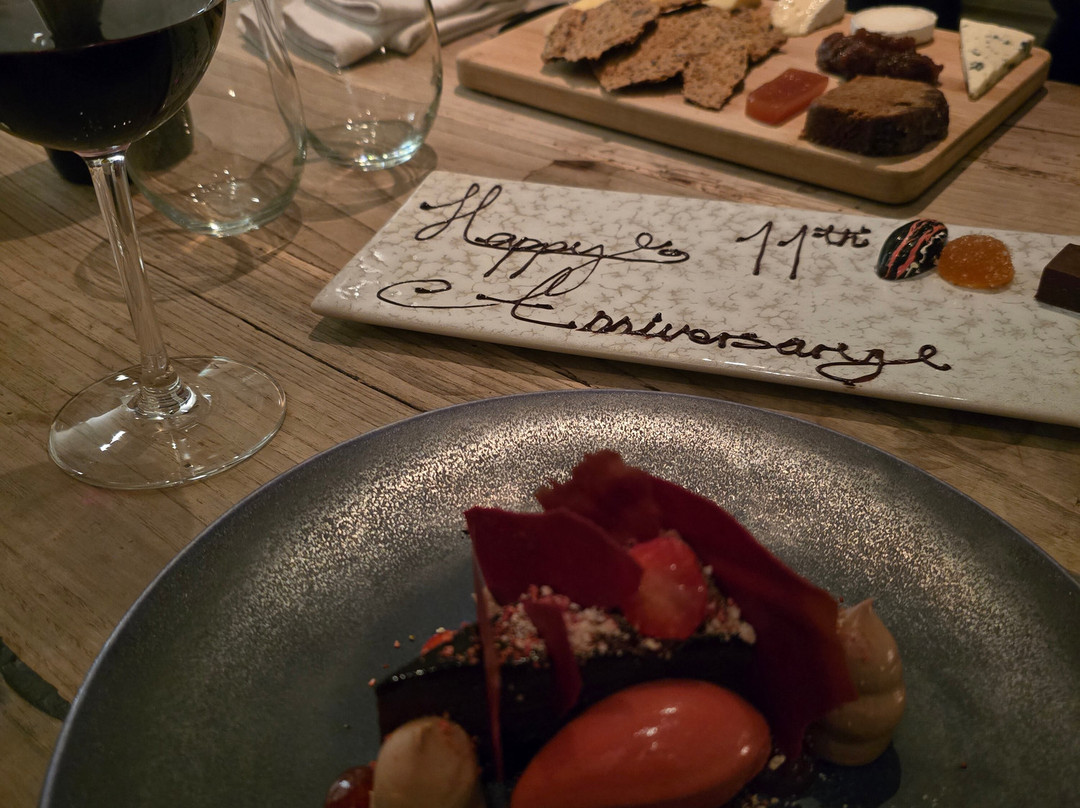 Happy 11th
Anniversary